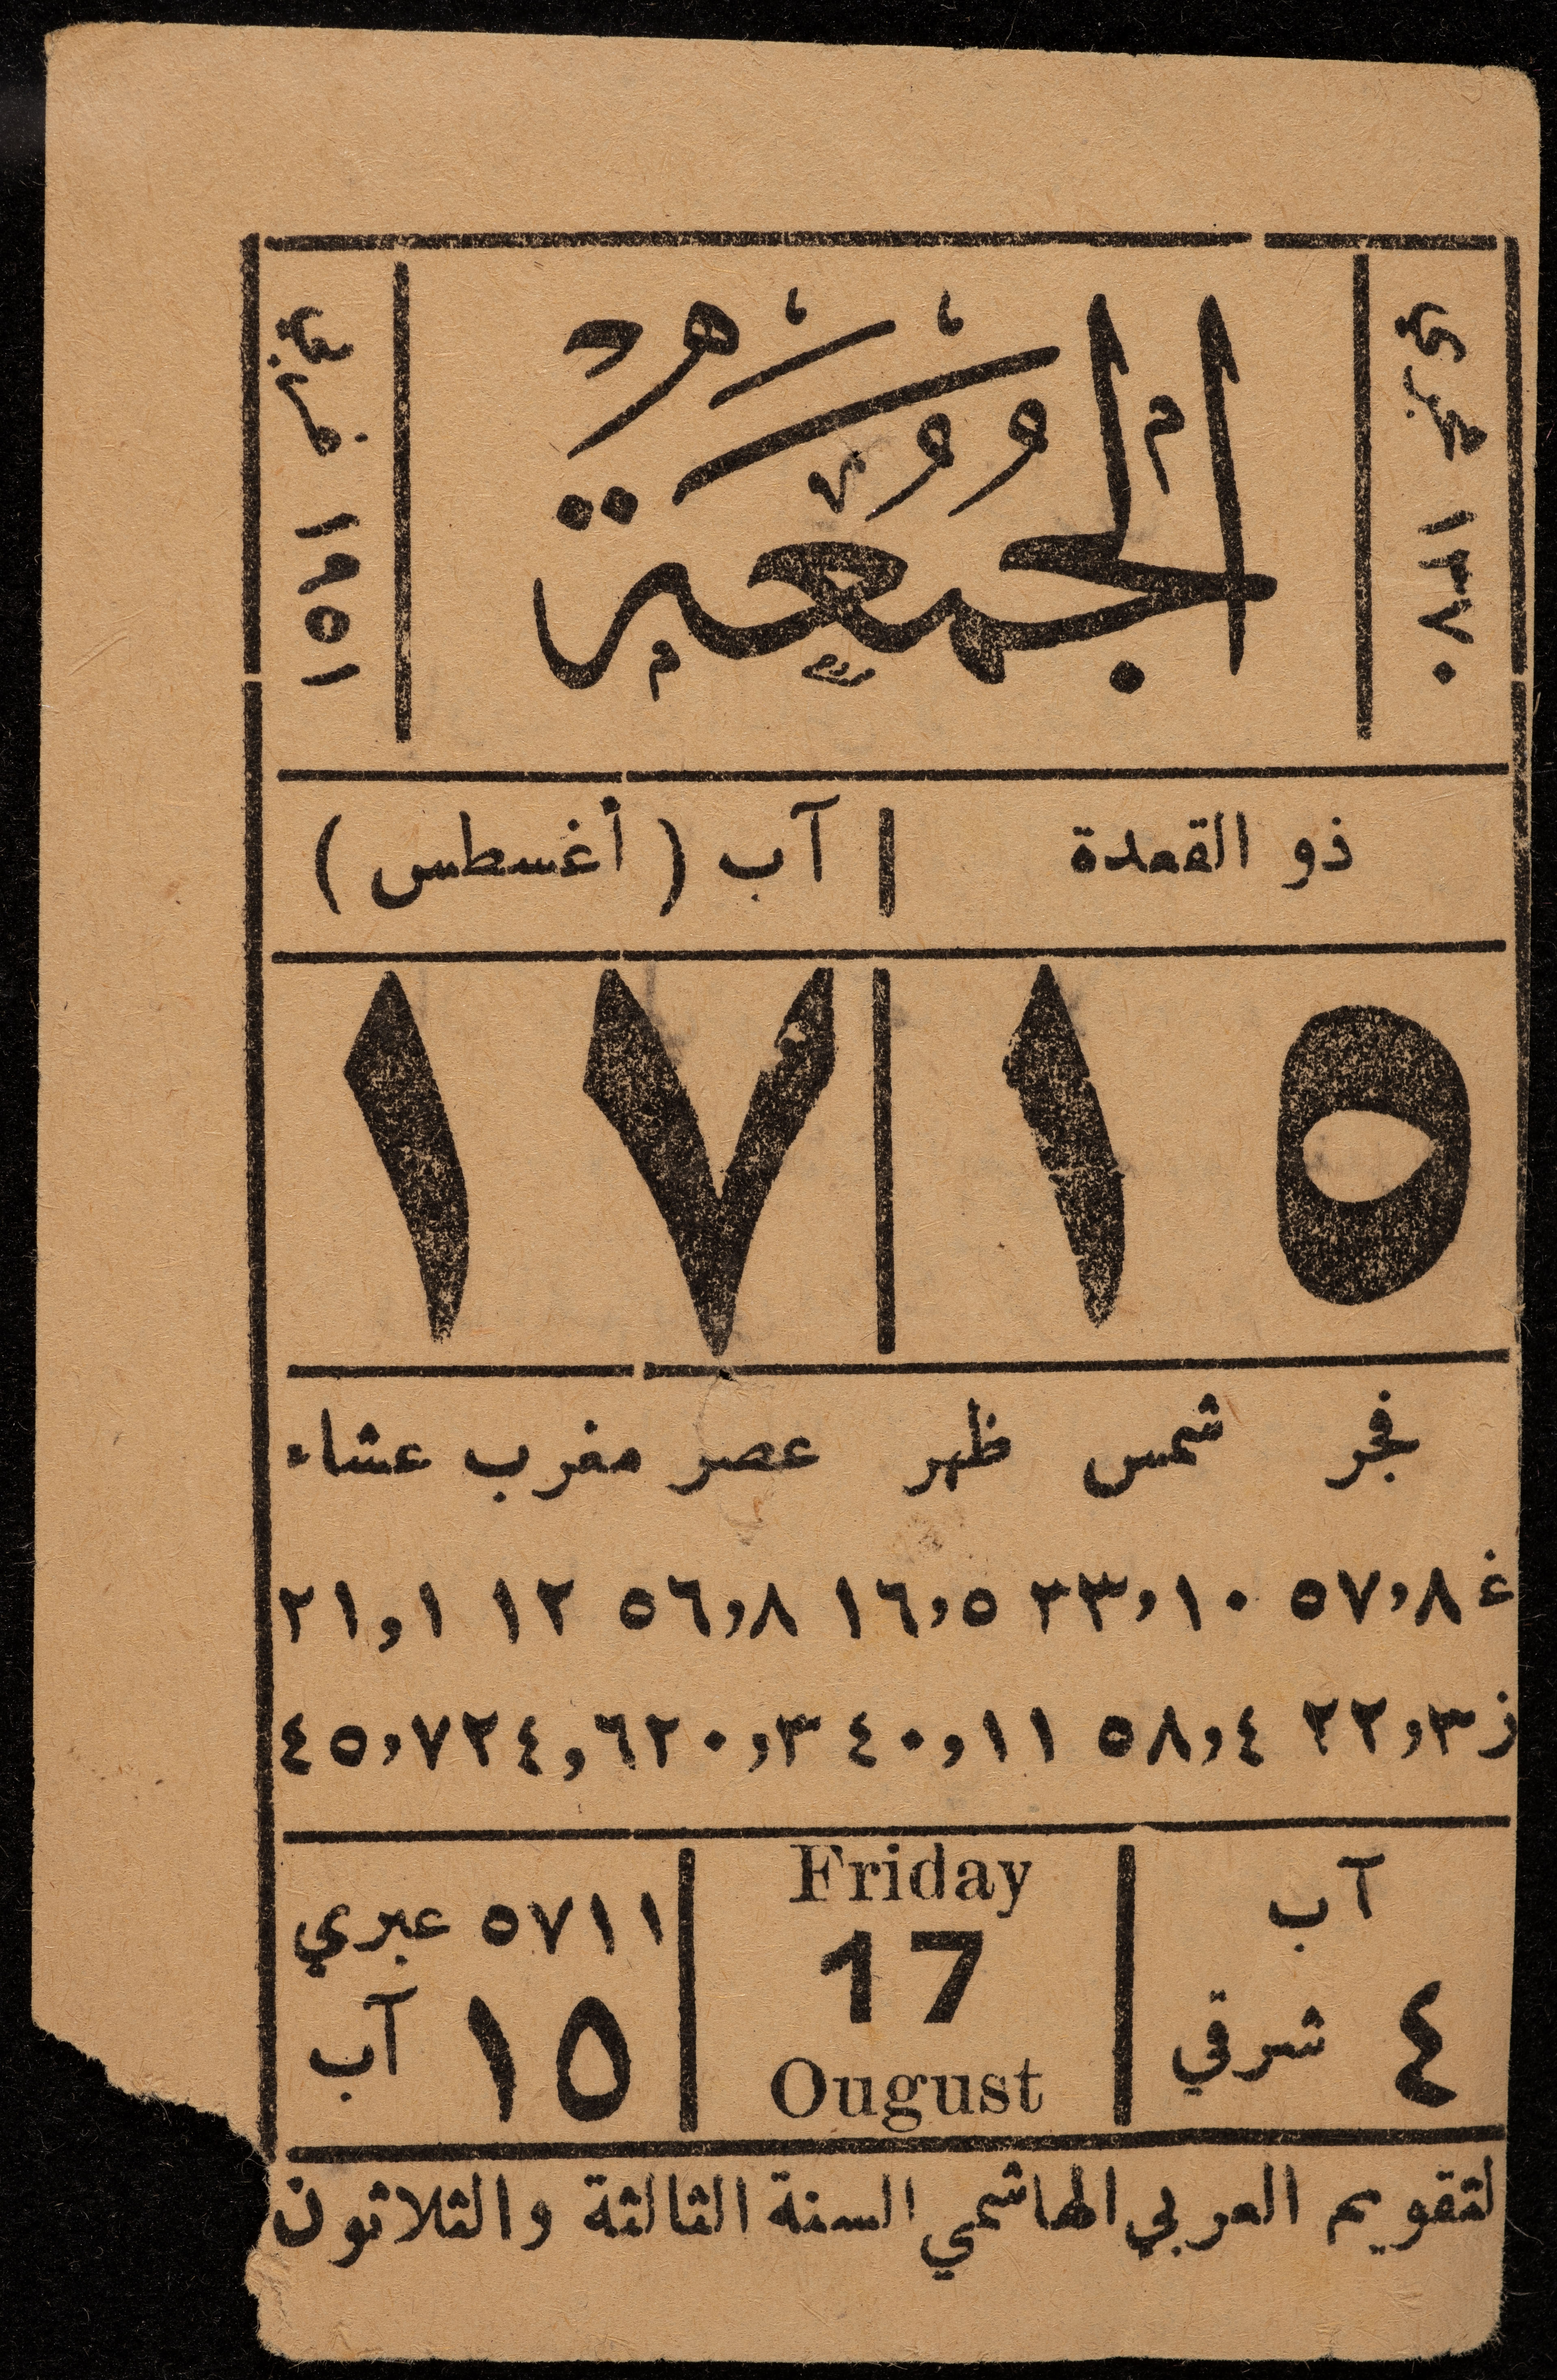 ١٣٧٠ هجري
الجمعة
١٩٥١ غربي
ذو القعدة | آب ( أغسطس )
١٥ | ١٧
فجر شمس ظهر عصر مغرب عشاء
غ ٥٧,٨ ٣٣,١٠ ١٦,٥ ٥٦,٨ ١٢ ٢١,١
ز ٢٢,٣ ٥٨,٤ ٤٠,١١ ٢٠,٣ ٢٤,٦ ٤٥,٧
آب
٤ شرقي
Friday
17
Ougust
٥٧١١ عبري
١٥ آب
لتقويم العربي الهاشمي السنة الثالثة والثلاثون